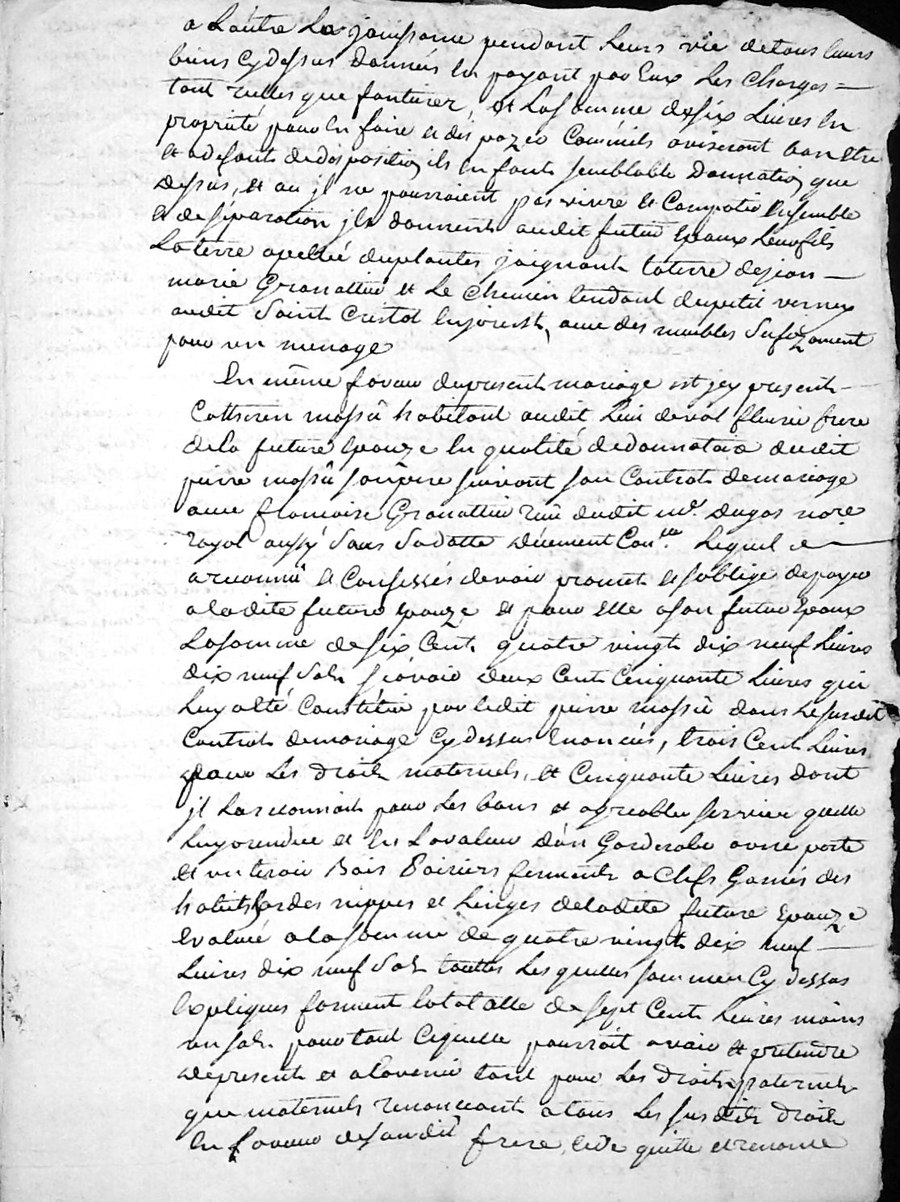 a Lautre La jouissance pendant Leurs vie detous Leurs
biens Cydessus donnés En payant par Eux Les Charges
tant telles que fonturer, et La somme desix Livres En
propriété pour En faire et dispozer Comm'ils aviseront bon Etre
Et adefaut de disposition ils En font semblable Donnation que
dessus, Et ou jl ne pourroient pas vivre et Compatir Ensemble
Et de séparation jls donnent audit futur Epoux Leur fils
La terre apellée duplantes joignant La terre dejean
marie Granottier et Le Chemin tendant dupetit verney
audit Saint Cristot Enjorest, avec des meubles Sufizament
pour un menage
En même faveur dupresent mariage est jcy present
Cattherin massû habitant audit Lieu deval fleurie frere
dela future Epouze En qualité dedonnataire dudit
pierre massû son père suivant son Contrat demariage
avec francoise Granottier Reçû dudit me. Dugas nore
royal aussy Sous Sa datte duement Conlle. Lequel a
a reconnû et Confessés devoir promet et soblige depayer
aladite future Epouze et pour Elle a son futur Epoux
La somme desix Cent quatre vingt dix neuf Livres
dix neuf Sols scavoir deux Cent Cinquante Livres qui
Luy a été Constitué par Ledit pierre massû dans Le susdit
Contrat demariage Cy dessus Enoncés, trois Cent Livres
pour Les droits maternels, et Cinquante Livres dont
jl La reconnoit pour Les bons et agreables services quelle
Luy a rendue et En La valeur d'un Garderobe a une porte
et un tiroir Bois Poiriers fermants a Clefs Garnis des
habits hardes nippes et Linges deladite future Epouze
Evalué ala somme de quatre vingt dix neuf
Livres dix neuf Sols touttes Les quelles sommes Cy dessus
Expliques forment La totalle de sept Cent Livres moins
un sols pour tout Cequelle pourroit avoir et pretendre
depresent et alavenir tant pour Les droits paternels
que maternels renonceant atous Les susdits droits
En faveur desondit frere, Cede quitte et renonce